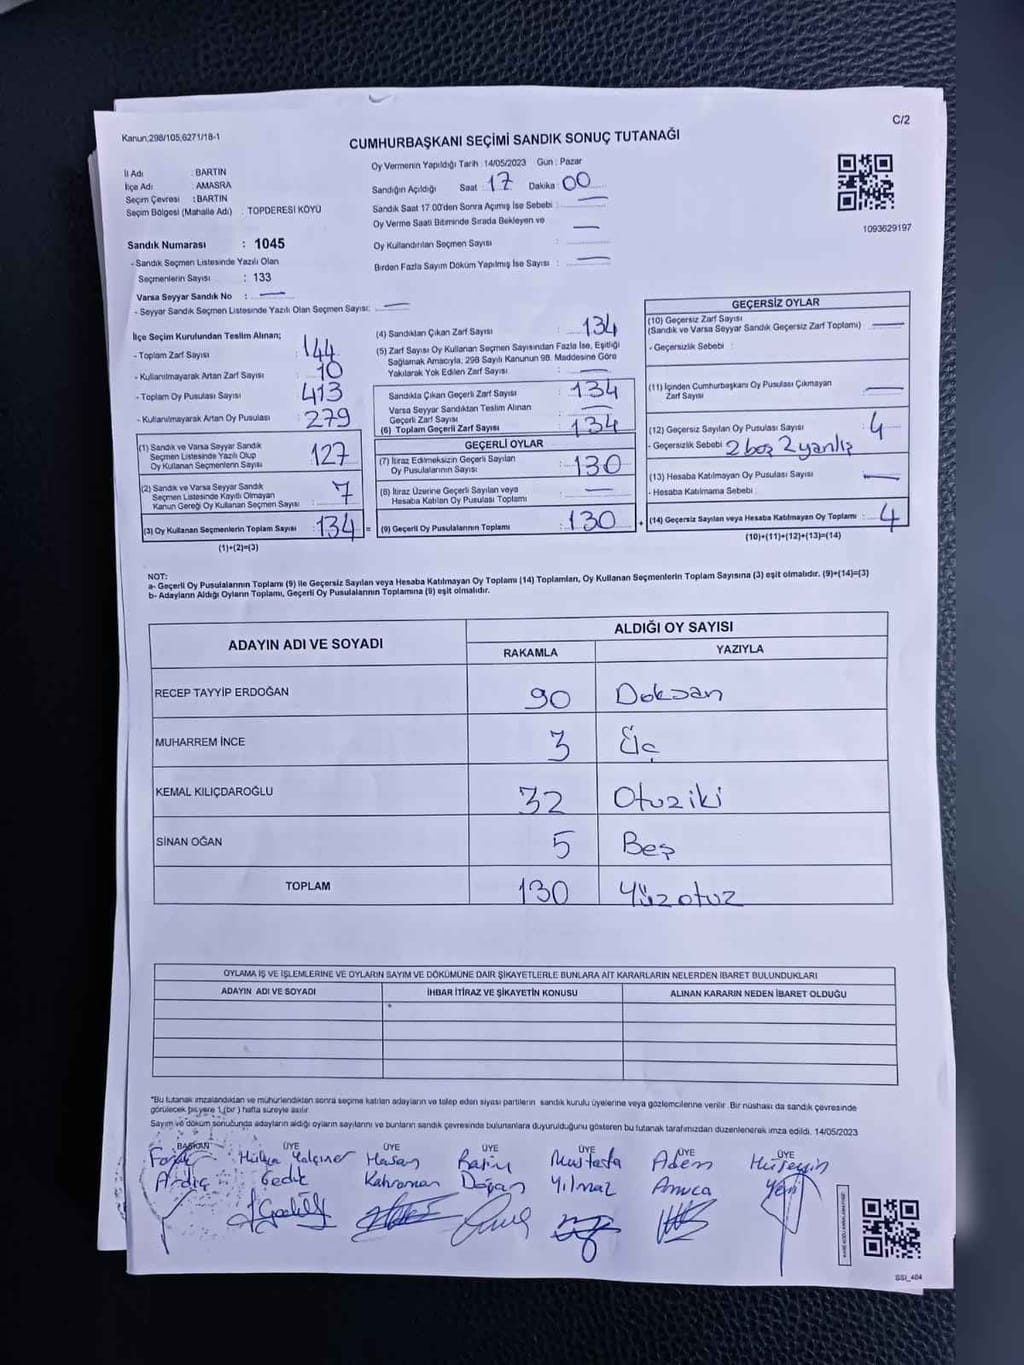 Kanun.298/105,6271/18-1
C/2
CUMHURBAŞKANI SEÇİMİ SANDIK SONUÇ TUTANAĞI
İl Adı : BARTIN
İlçe Adı : AMASRA
Seçim Çevresi : BARTIN
Seçim Bölgesi (Mahalle Adı) : TOPDERESİ KÖYÜ
Sandık Numarası : 1045
- Sandık Seçmen Listesinde Yazılı Olan
Seçmenlerin Sayısı : 133
Varsa Seyyar Sandık No : —
- Seyyar Sandık Seçmen Listesinde Yazılı Olan Seçmen Sayısı: —
Oy Vermenin Yapıldığı Tarih : 14/05/2023 Gün : Pazar
Sandığın Açıldığı Saat 17 Dakika 00
Sandık Saat 17.00'den Sonra Açmış İse Sebebi : —
Oy Verme Saati Bitiminde Sırada Bekleyen ve
Oy Kullandırılan Seçmen Sayısı : —
Birden Fazla Sayım Döküm Yapılmış İse Sayısı : —
1093629197
İlçe Seçim Kurulundan Teslim Alınan;
- Toplam Zarf Sayısı : 144
- Kullanılmayarak Artan Zarf Sayısı : 10
- Toplam Oy Pusulası Sayısı : 413
- Kullanılmayarak Artan Oy Pusulası : 279
(1) Sandık ve Varsa Seyyar Sandık
Seçmen Listesinde Yazılı Olup
Oy Kullanan Seçmenlerin Sayısı : 127
(2) Sandık ve Varsa Seyyar Sandık
Seçmen Listesinde Kayıtlı Olmayan
Kanun Gereği Oy Kullanan Seçmen Sayısı : 7
(3) Oy Kullanan Seçmenlerin Toplam Sayısı : 134 =
(1)+(2)=(3)
(4) Sandıktan Çıkan Zarf Sayısı : 134
(5) Zarf Sayısı Oy Kullanan Seçmen Sayısından Fazla İse, Eşitliği
Sağlamak Amacıyla, 298 Sayılı Kanunun 98. Maddesine Göre
Yakılarak Yok Edilen Zarf Sayısı : —
Sandıkta Çıkan Geçerli Zarf Sayısı : 134
Varsa Seyyar Sandıktan Teslim Alınan
Geçerli Zarf Sayısı : —
(6) Toplam Geçerli Zarf Sayısı : 134
GEÇERLİ OYLAR
(7) İtiraz Edilmeksizin Geçerli Sayılan
Oy Pusulalarının Sayısı : 130
(8) İtiraz Üzerine Geçerli Sayılan veya
Hesaba Katılan Oy Pusulası Toplamı : —
(9) Geçerli Oy Pusulalarının Toplamı : 130 +
GEÇERSİZ OYLAR
(10) Geçersiz Zarf Sayısı
(Sandık ve Varsa Seyyar Sandık Geçersiz Zarf Toplamı) : —
- Geçersizlik Sebebi :
(11) İçinden Cumhurbaşkanı Oy Pusulası Çıkmayan
Zarf Sayısı : —
(12) Geçersiz Sayılan Oy Pusulası Sayısı : 4
- Geçersizlik Sebebi : 2 boş 2 yanlış
(13) Hesaba Katılmayan Oy Pusulası Sayısı : —
- Hesaba Katılmama Sebebi :
(14) Geçersiz Sayılan veya Hesaba Katılmayan Oy Toplamı : 4
(10)+(11)+(12)+(13)=(14)
NOT:
a- Geçerli Oy Pusulalarının Toplamı (9) ile Geçersiz Sayılan veya Hesaba Katılmayan Oy Toplamı (14) Toplamları, Oy Kullanan Seçmenlerin Toplam Sayısına (3) eşit olmalıdır. (9)+(14)=(3)
b- Adayların Aldığı Oyların Toplamı, Geçerli Oy Pusulalarının Toplamına (9) eşit olmalıdır.
ADAYIN ADI VE SOYADI ALDIĞI OY SAYISI
RAKAMLA YAZIYLA
RECEP TAYYİP ERDOĞAN 90 Doksan
MUHARREM İNCE 3 Üç
KEMAL KILIÇDAROĞLU 32 Otuziki
SİNAN OĞAN 5 Beş
TOPLAM 130 Yüzotuz
OYLAMA İŞ VE İŞLEMLERİNE VE OYLARIN SAYIM VE DÖKÜMÜNE DAİR ŞİKAYETLERLE BUNLARA AİT KARARLARIN NELERDEN İBARET BULUNDUKLARI
ADAYIN ADI VE SOYADI İHBAR İTİRAZ VE ŞİKAYETİN KONUSU ALINAN KARARIN NEDEN İBARET OLDUĞU
"Bu tutanak imzalandıktan ve mühürlendikten sonra seçime katılan adayların ve talep eden siyasi partilerin sandık kurulu üyelerine veya gözlemcilerine verilir. Bir nüshası da sandık çevresinde
görülecek bir yere 1 (bir ) hafta süreyle asılır.
Sayım ve döküm sonucunda adayların aldığı oyların sayılarını ve bunların sandık çevresinde bulunanlara duyurulduğunu gösteren bu tutanak tarafımızdan düzenlenerek imza edildi. 14/05/2023
BAŞKAN ÜYE ÜYE ÜYE ÜYE ÜYE ÜYE
Hülya Yalçıner Hasan Mustafa Adem Hüseyin
Ardıç Gedik Kahraman Doğan Yılmaz Amuca
SSI_404